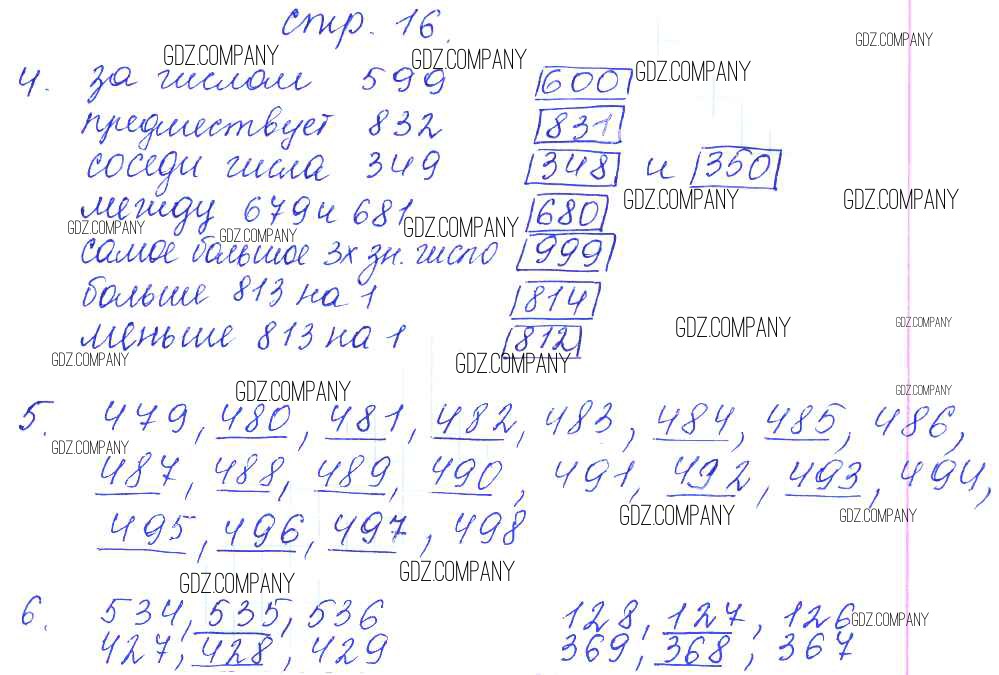 стр. 16.
GDZ.COMPANY
GDZ.COMPANY GDZ.COMPANY
4. за числом 599 600
GDZ.COMPANY
предшествует 832 831
соседи числа 349 348 и 350
GDZ.COMPANY GDZ.COMPANY
между 679 и 681 680
GDZ.COMPANY GDZ.COMPANY GDZ.COMPANY
самое большое 3х зн. число 999
больше 813 на 1 814
GDZ.COMPANY GDZ.COMPANY
меньше 813 на 1 812
GDZ.COMPANY GDZ.COMPANY
GDZ.COMPANY GDZ.COMPANY
5. 479, 480, 481, 482, 483, 484, 485, 486,
GDZ.COMPANY
487, 488, 489, 490, 491, 492, 493, 494,
GDZ.COMPANY GDZ.COMPANY
495, 496, 497, 498
GDZ.COMPANY GDZ.COMPANY
6. 534, 535, 536 128, 127, 126
GDZ.COMPANY
427, 428, 429 369, 368, 367